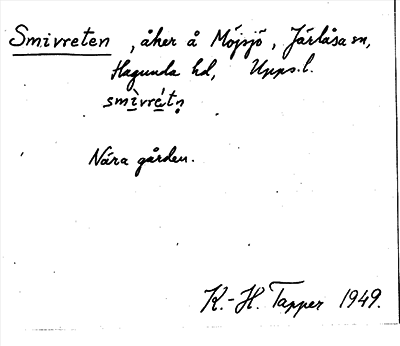 Smivreten, åker å Möjsjö, Järlåsa sn,
Hagunda hd, Upps.l.
smìvrétn̥
Nära gården.
K.-H. Tapper 1949.